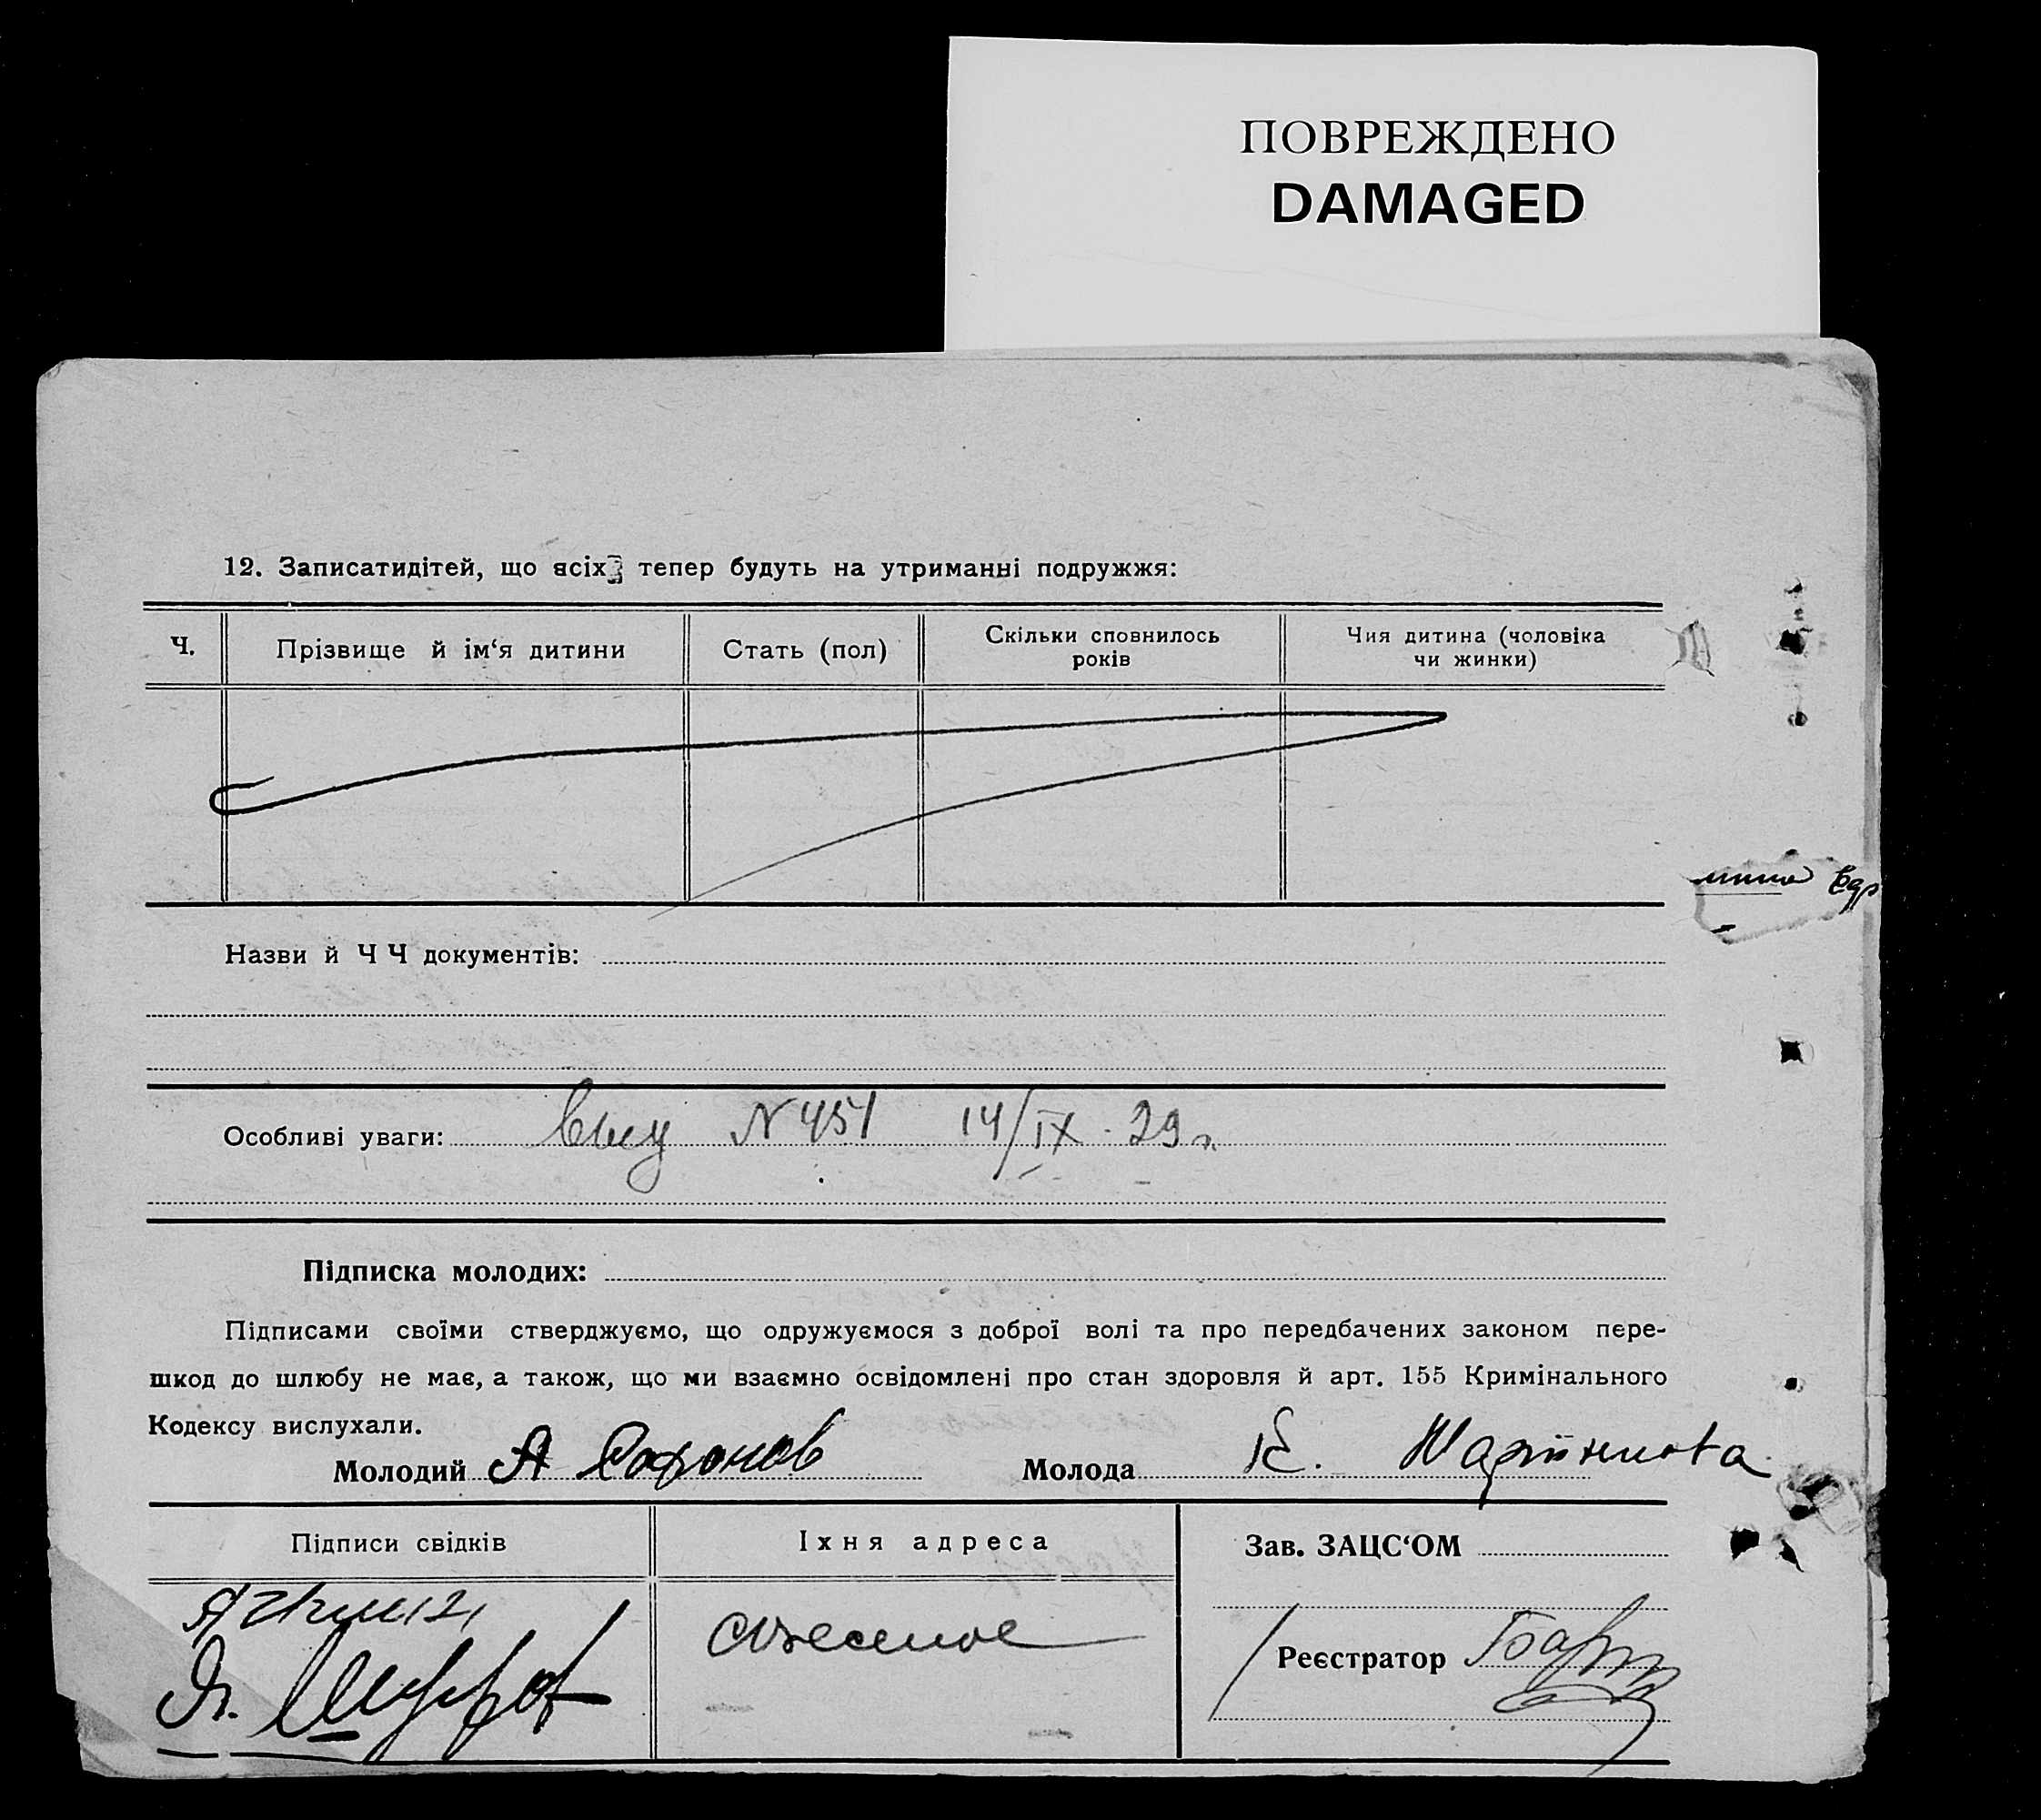 ПОВРЕЖДЕНО
DAMAGED
12. Записатидітей, що всіх тепер будуть на утриманні подружжя:
Ч. Прізвище й ім‘я дитини Стать (пол) Скільки сповнилось років Чия дитина (чоловіка чи жинки)
Назви й Ч Ч документів:
Особливі уваги: N 451 14/IX - 29 г.
Підписка молодих:
Підписами своїми стверджуємо, що одружуємося з доброї волі та про передбачених законом пере-
шкод до шлюбу не має, а також, що ми взаємно освідомлені про стан здоровля й арт. 155 Кримінального
Кодексу вислухали.
Молодий А Сафонов Молода К.
Підписи свідків Їхня адреса Зав. ЗАЦС‘ОМ
Реєстратор